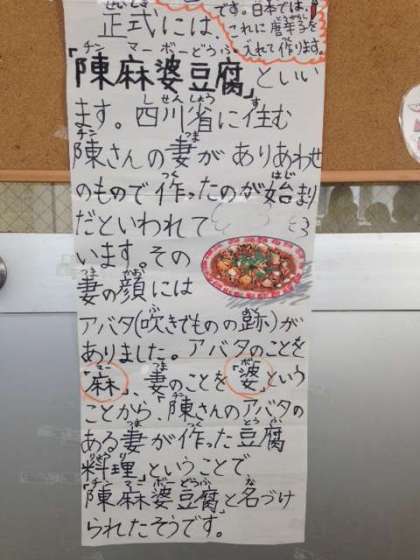 です。日本では、
これに唐辛子を
入れて作ります。
正式には、
「陳麻婆豆腐」といい
ます。四川省に住む
陳さんの妻がありあわせ
のもので作ったのが始まり
だといわれて
います。その
妻の顔には
アバタ(吹きでものの跡)が
ありました。アバタのことを
「麻」、妻のことを「婆」という
ことから、陳さんのアバタの
ある妻が作った豆腐
料理」ということで
「陳麻婆豆腐」と名づけ
られたそうです。